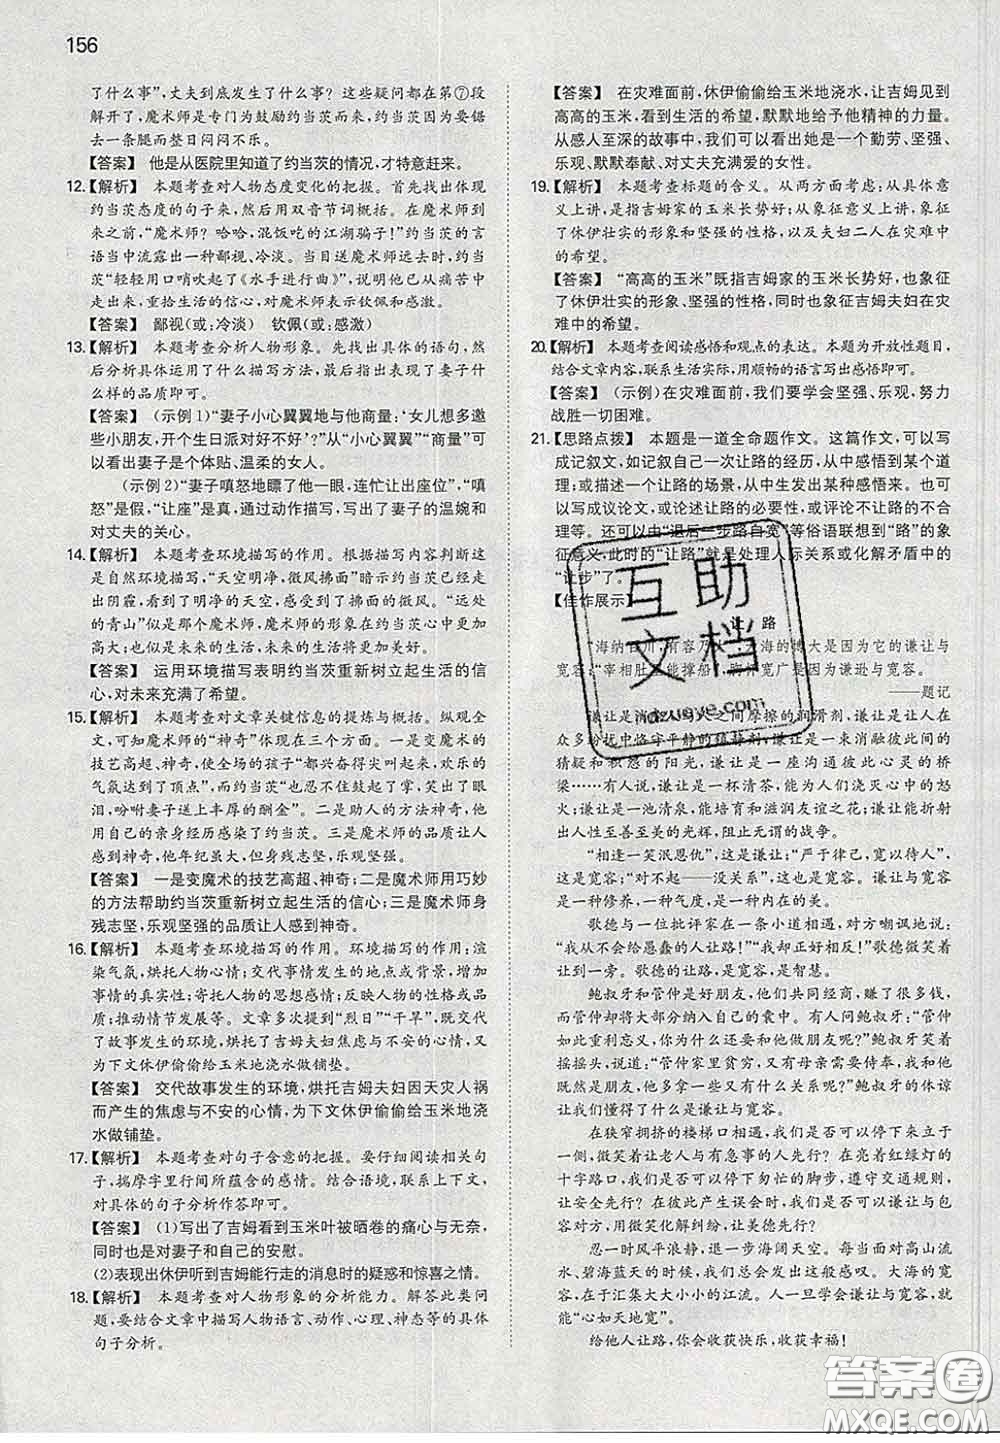 156
了什么事”,丈夫到底发生了什么事？这些疑问都在第⑦段
解开了,魔术师是专门为鼓励约当茨而来,约当茨因为要锯
去一条腿而整日闷闷不乐。
【答案】 他是从医院里知道了约当茨的情况,才特意赶来。
12.【解析】 本题考查对人物态度变化的把握。首先找出体现
约当茨态度的句子来,然后用双音节词概括。在魔术师到
来之前,“魔术师？哈哈,混饭吃的江湖骗子！”约当茨的言
语当中流露出一种鄙视、冷淡。当目送魔术师远去时,约当
茨“轻轻用口哨吹起了《水手进行曲》,说明他已从痛苦中
走出来,重拾生活的信心,对魔术师表示钦佩和感激。
【答案】 鄙视(或:冷淡) 钦佩(或:感激)
13.【解析】 本题考查分析人物形象。先找出具体的语句,然
后分析具体运用了什么描写方法,最后概括表现了妻子什
么样的品质即可。
【答案】 (示例1)“妻子小心翼翼地与他商量:‘女儿想多邀
些小朋友,开个生日派对好不好’?”从“小心翼翼”“商量”可
以看出妻子是个体贴、温柔的女人。
(示例2)“妻子嗔怒地瞟了他一眼,连忙让出座位”,“嗔
怒”是假,“让座”是真,通过动作描写,写出了妻子的温婉和
对丈夫的关心。
14.【解析】 本题考查环境描写的作用。根据描写内容判断这
是自然环境描写,“天空明净,微风拂面”暗示约当茨已经走
出阴霾,看到了明净的天空,感受到了拂面的微风。“远处
的青山”似如那个魔术师,魔术师的形象在约当茨心中更加
高大;也似如未来的生活,未来的生活将更加美好。
【答案】 运用环境描写表明约当茨重新树立起生活的信
心,对未来充满了希望。
15.【解析】 本题考查对文章关键信息的提炼与概括。纵观全
文,可知魔术师的“神奇”体现在三个方面。一是变魔术的
技艺高超、神奇,使全场的孩子“都兴奋得尖叫起来,欢乐的
气氛达到了顶点”“当茨也忍不住鼓起了掌,甚至笑出了眼
泪,吩咐妻子送上丰厚的酬金”。二是助人的方法神奇,用自
己的亲身经历感染了约当茨。三是魔术师的品质让人
感到神奇,他年纪虽大、但身残志坚,乐观坚强。
【答案】 一是变魔术的技艺高超、神奇;二是魔术师用巧妙
的方法帮助约当茨重新树立起生活的信心;三是魔术师身
残志坚,乐观坚强的品质让人感到神奇。
16.【解析】 本题考查环境描写的作用。环境描写的作用;渲
染气氛,烘托人物心情;交代事情发生的地点或背景,增加
事情的真实性;寄托人物的思想感情;反映人物的性格或品
质;推动情节发展等。文章多次提到“烈日”“干旱”,既交代
了故事发生的环境,烘托了吉姆夫妇焦虑与不安的心情,又
为下文休伊偷偷给玉米地浇水做铺垫。
【答案】 交代故事发生的环境,烘托吉姆夫妇因天灾人祸
而产生的焦虑与不安的心情,为下文休伊偷偷给玉米地浇
水做铺垫。
17.【解析】 本题考查对句子含意的把握。要仔细阅读相关句
子,揣摩字里行间所蕴含的感情。结合语境,联系上下文,
对具体的句子分析作答即可。
【答案】 (1)写出了吉姆看到玉米叶被晒卷的痛心与无奈,
同时也是对妻子和自己的安慰。
(2)表现出休伊听到吉姆能行走的消息时的疑惑和惊喜之情。
18.【解析】 本题考查对人物形象的分析能力。解答此类问
题,要结合文章中描写人物语言、动作、心理、神态等的具体
句子分析。
【答案】 在灾难面前,休伊偷偷给玉米地浇水,让吉姆见到
高高的玉米,看到生活的希望,默默地给予他精神的力量。
从感人至深的故事中,我们可以看出她是一个勤劳、坚强、
乐观、默默奉献、对丈夫充满爱的女性。
19.【解析】 本题考查标题的含义。从两方面考虑:从具体意
义上讲,是指吉姆家的玉米长势好;从象征意义上讲,象征
了休伊壮实的形象和坚强的性格,以及夫妇二人在灾难中
的希望。
【答案】 “高高的玉米”既指吉姆家的玉米长势好,也象征
了休伊壮实的形象、坚强的性格,同时也象征吉姆夫妇在灾
难中的希望。
20.【解析】 本题考查阅读感悟和观点的表达。本题为开放性题目,
结合文章内容,联系生活实际,用顺畅的语言写出感悟即可。
【答案】 (示例)在灾难面前,我们要学会坚强、乐观,努力
战胜一切困难。
21.【思路点拨】 本题是一道全命题作文。这篇作文,可以写
成记叙文,如记叙自己一次让路的经历,从中感悟到某个道
理;或描写让路的场景,从中生发出某种感悟。也可以
写成议论文,或论述让路的必要性,或论述不让路的不合
理等。还可以由“退后一步路自宽”等俗语联想到“路”的象
征意义,此时的“让路”就是处理人际关系或化解矛盾中的
“让步”了。
【佳作展示】
让 路
“海纳百川,有容乃大。”大海的博大是因为它的谦让与
宽容;“宰相肚里能撑船”,胸怀宽广是因为谦逊与宽容。
——题记
谦让是消除人与人之间摩擦的润滑剂,谦让是让人在
众多纷扰中恪守平静的镇静剂,谦让是一束消融彼此心间
猜疑和怨恨的阳光,谦让是一座沟通彼此心灵的桥
梁……有人说,谦让是一杯清茶,能为人们浇灭心中的怒
火;谦让是一池清泉,能培育和滋润友谊之花;谦让能折射
出人性至善至美的光辉,阻止无谓的战争。
“相逢一笑泯恩仇”,这是谦让;“严于律己,宽以待人”,
这是宽容;“对不起——没关系”,这是谦让与宽容。谦让是
一种修养,一种气度,是一种内在的美。
歌德与一位批评家在一条小道相遇,对方嘲讽地说:
“我从不会给愚蠢的人让路！”“我却正好相反！”歌德微笑着
让到一旁。歌德的让路,是宽容,是智慧。
鲍叔牙和管仲是好朋友,他们共同经商,赚了很多钱,
而管仲却将大部分纳入自己的囊中。有人问鲍叔牙:“管仲
如此重利忘义,你为什么还要与他往来？”鲍叔牙笑着摇
摇头,说道:“管仲家里贫穷,又有母亲需要侍奉,我和他
既然是朋友,多一些少一些又有什么关系呢？”鲍叔牙的体谅
让我们懂得了什么是谦让与宽容。
在狭窄拥挤的楼梯口相遇,我们是否可以停下来立于
一侧,微笑着让老人与有急事的人先行？在亮着红绿灯的
十字路口,我们是否可以停下匆忙的脚步,遵守交通规则,
让安全先行？在彼此产生误会时,我们是否可以退一步包
容对方,用微笑化解纠纷,让美德先行？
忍一时风平浪静,退一步海阔天空。每当面对高山流
水、碧海蓝天的时候,我们总是感慨万千。大海的宽广和包
容,在于汇集大大小小的江流。人一旦学会谦让与宽容,便
能“心如天地宽”。
给他人让路,你会收获快乐,收获幸福！
互助
文档
答案圈
MXQE.COM